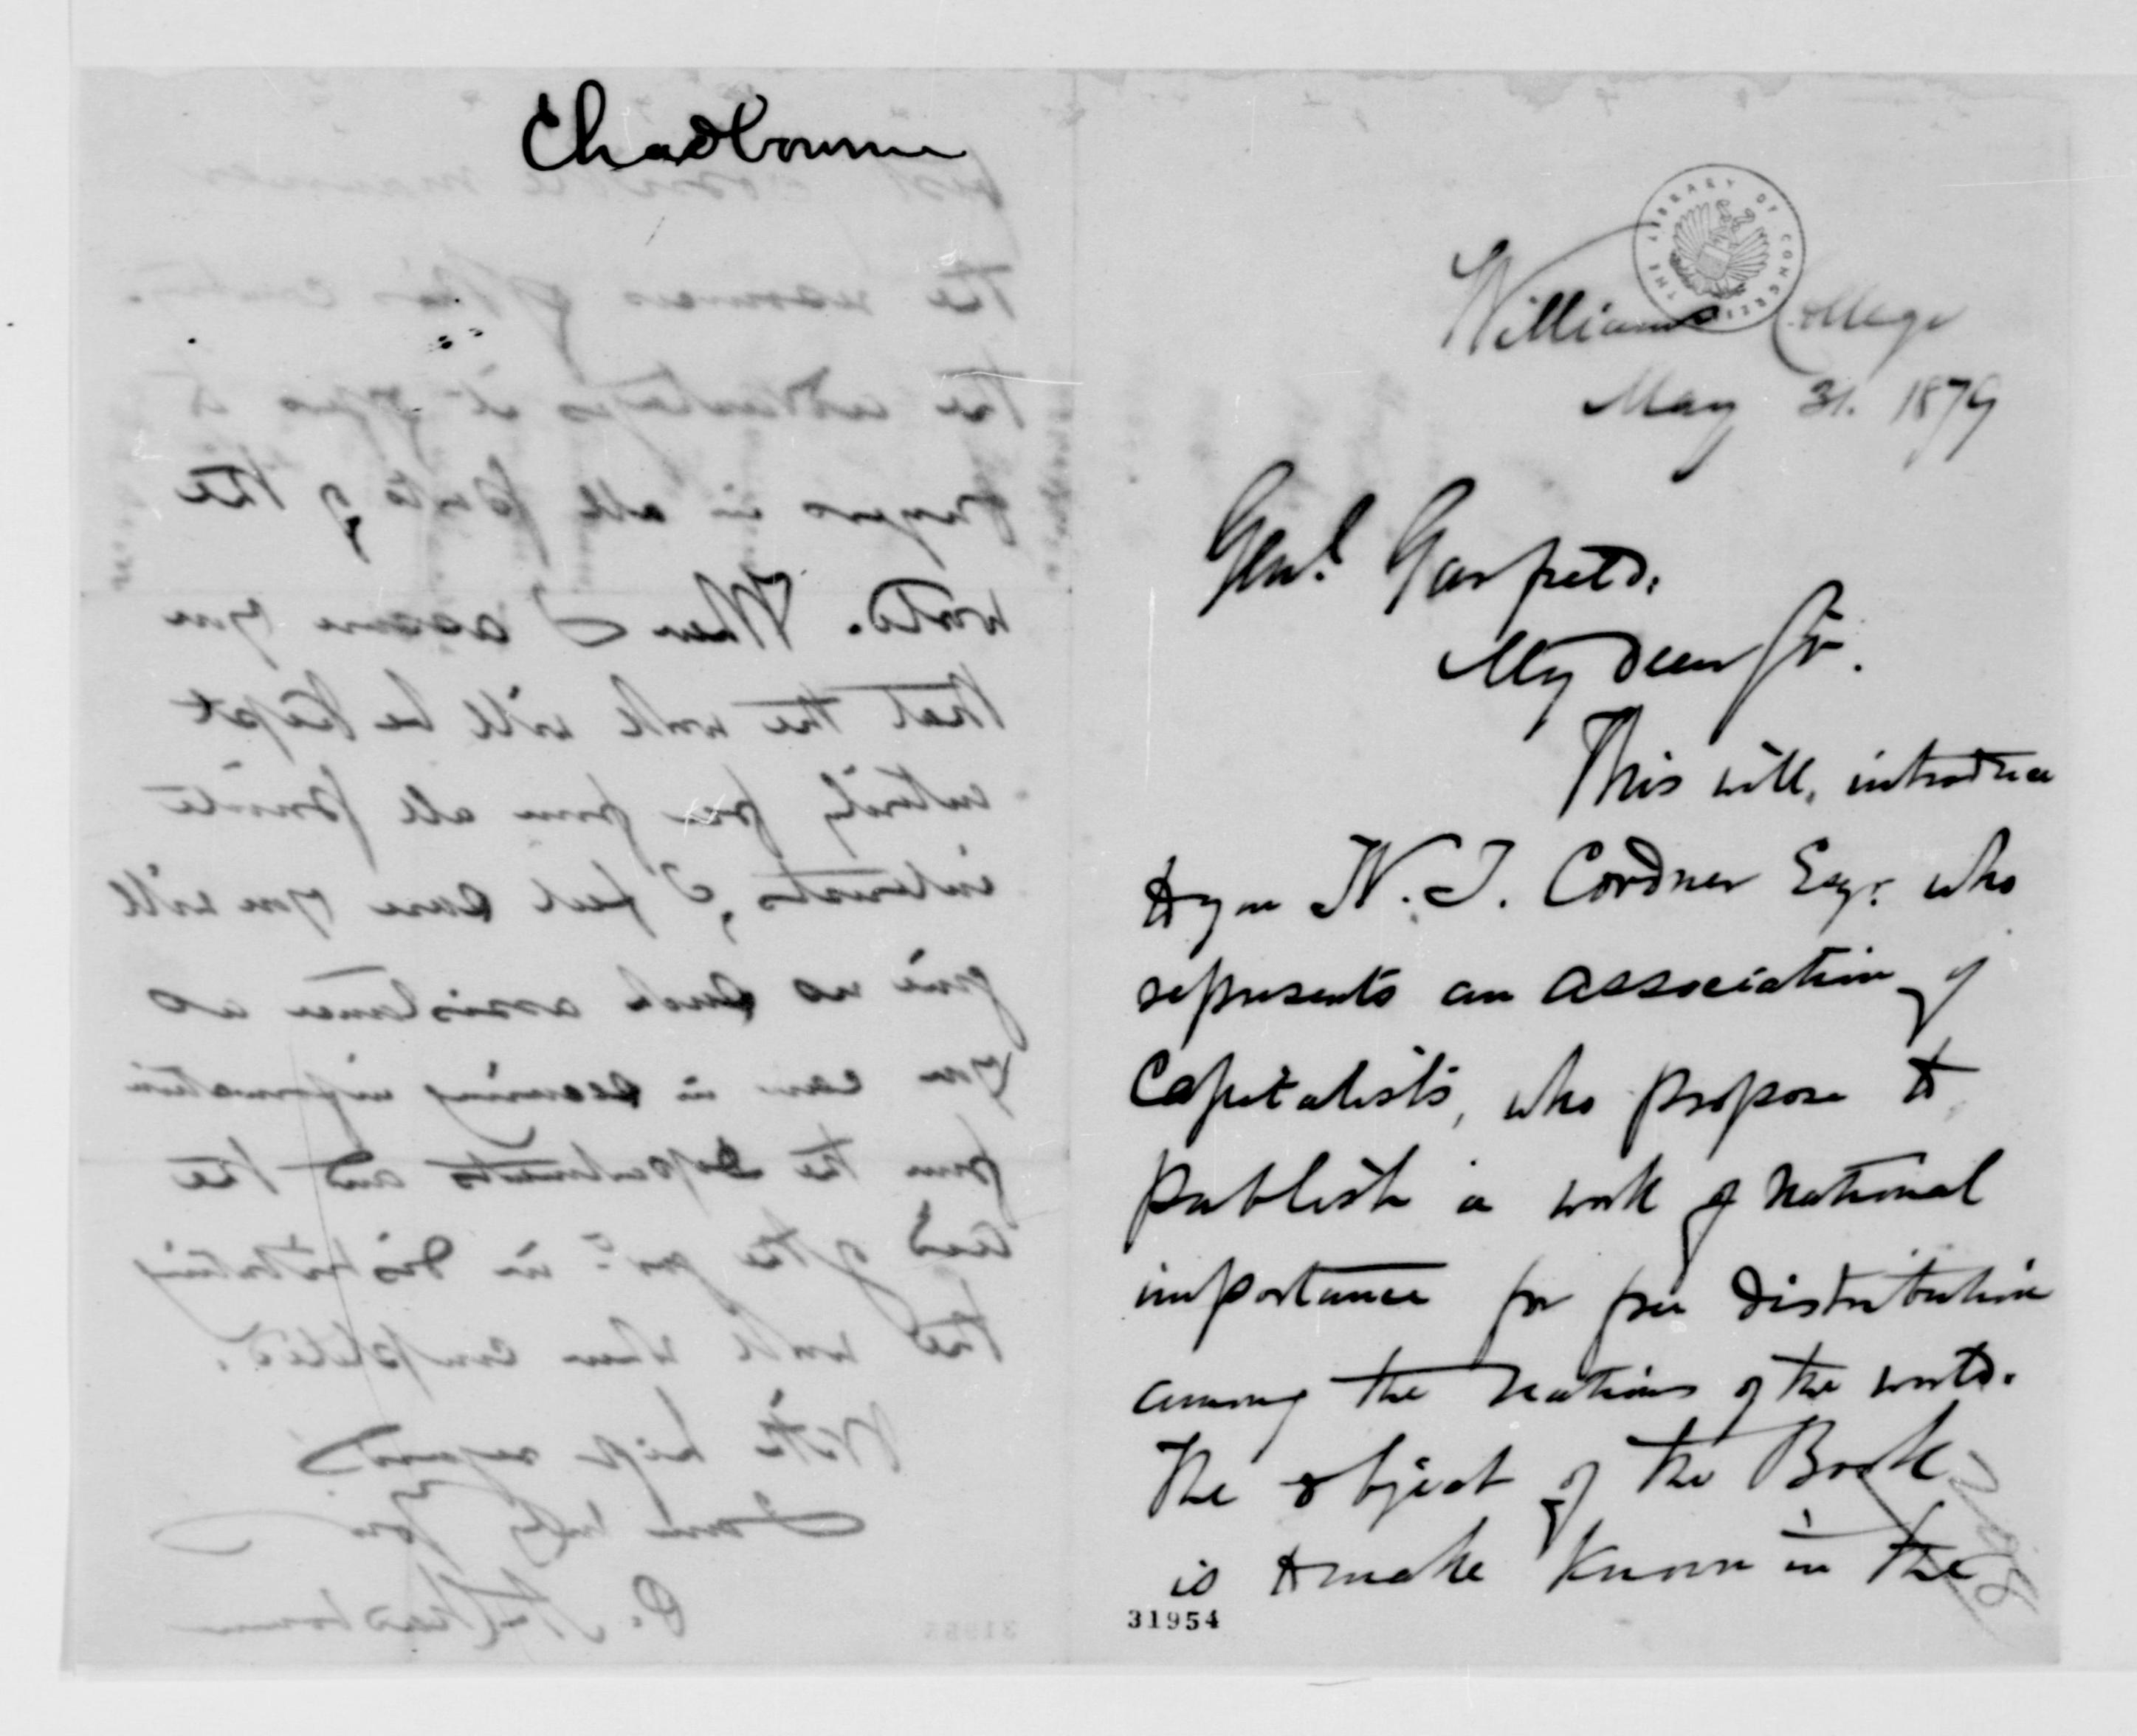 Chadbourne
THE LIBRARY OF CONGRESS
Williams College
May 31. 1879
Genl. Garfield:
My dear Sir.
This will introduce
to you W. T. Cordner Esqr. who
represents an association of
Capitalists, who propose to
publish a work of National
importance for free distribution
among the Nations of the world.
The object of the Book
is to make known in the
31954
best possible manner
the resources of this country.
the advantages it offers to
in all parts of the
world. When I assure you
that the work will be kept
entirely free from all private
interests, I feel sure you will
give us such assistance as
you can in securing information
from the departments and the
aid of the govt in distributing
the work when completed.
With high regards
I am truly Yours
P. A. Chadbourne
31955